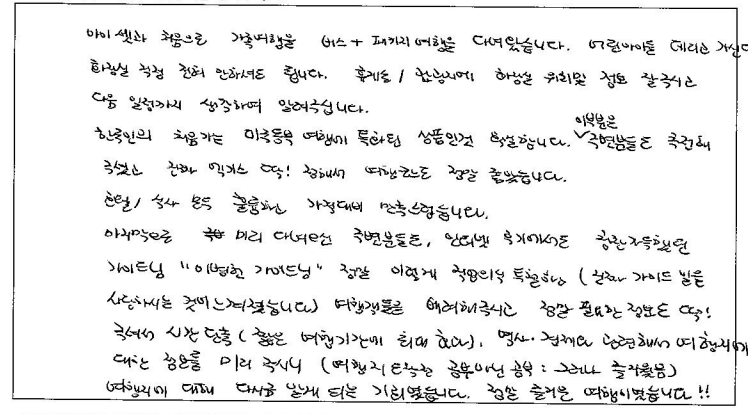 아이 셋과 처음으로 가족여행을 버스 + 패키지 여행을 다녀왔습니다. 어린아이들 데리고 가신다
화장실 걱정 전혀 안하셔도 됩니다. 휴게소 / 관광지에 화장실 위치및 정보 잘주시고
다음 일정까지 생각하여 알려주십니다.
한국인의 처음가는 미국동부 여행에 특화된 상품인것 확실합니다. 이부분은 주변분들도 추천해
주셨고 진짜 엑기스 딱! 정해서 여행코스도 정말 좋았습니다.
호텔 / 식사 모두 훌륭하고 가격대비 만족스럽습니다.
마지막으로 미리 다녀오신 주변분들도, 인터넷 후기에서도 칭찬자자했던
가이드님 "이병헌 가이드님" 정말 이렇게 직업의식 투철하신 (진짜 가이드 일을
사랑하시는 것이 느껴졌습니다) 여행객들을 배려해주시고 정말 필요한 정보도 딱!
주셔서 시간 단축 (짧은 여행기간에 최대 효과). 역사·경제와 관련해서 여행지에
대한 정보를 미리 주시니 (여행지 도착전 공부아닌 공부 : 그러나 즐거웠음)
여행지에 대해 다시금 알게 되는 기회였습니다. 정말 즐거운 여행이었습니다 !!